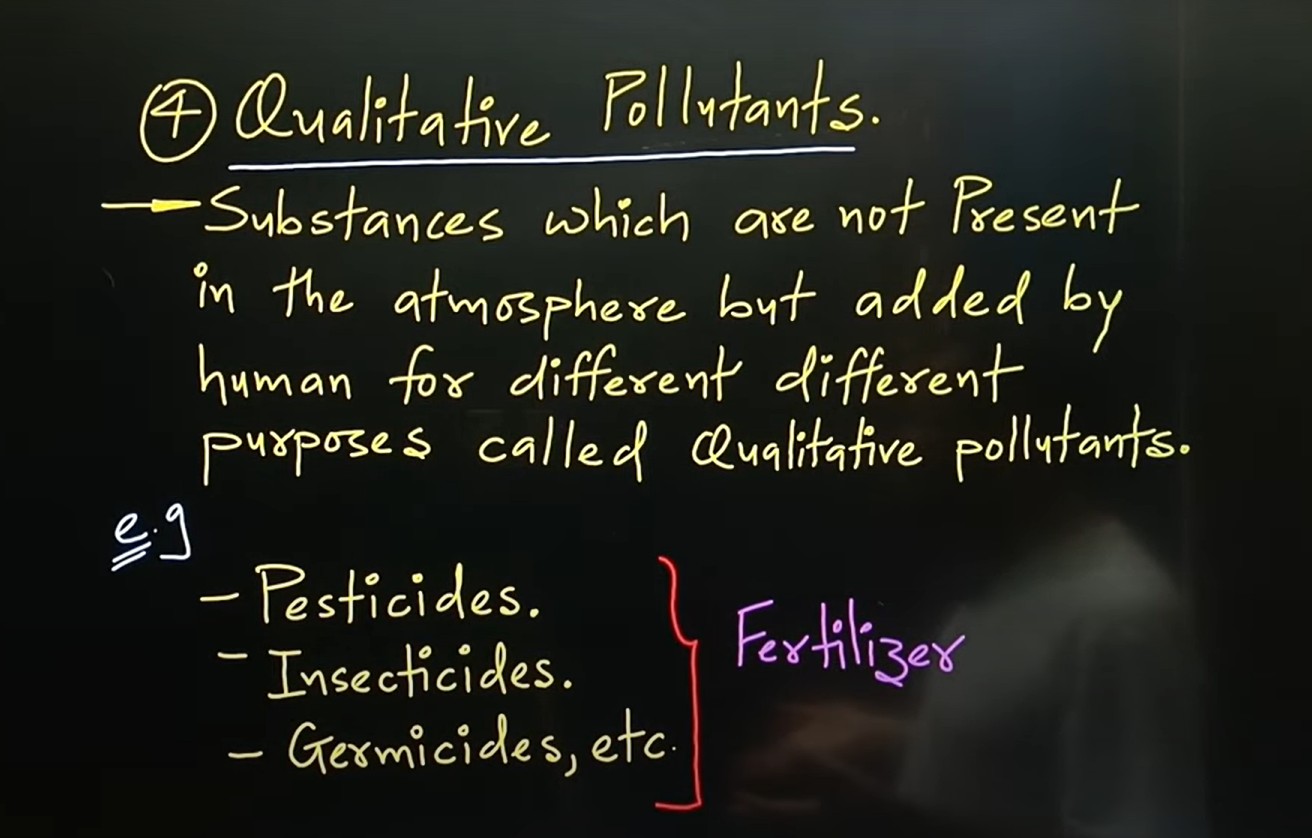 ④ Qualitative Pollutants.
→ Substances which are not Present
in the atmosphere but added by
human for different different
purposes called Qualitative pollutants.
e.g
- Pesticides.
- Insecticides.
- Germicides, etc.
Fertilizer